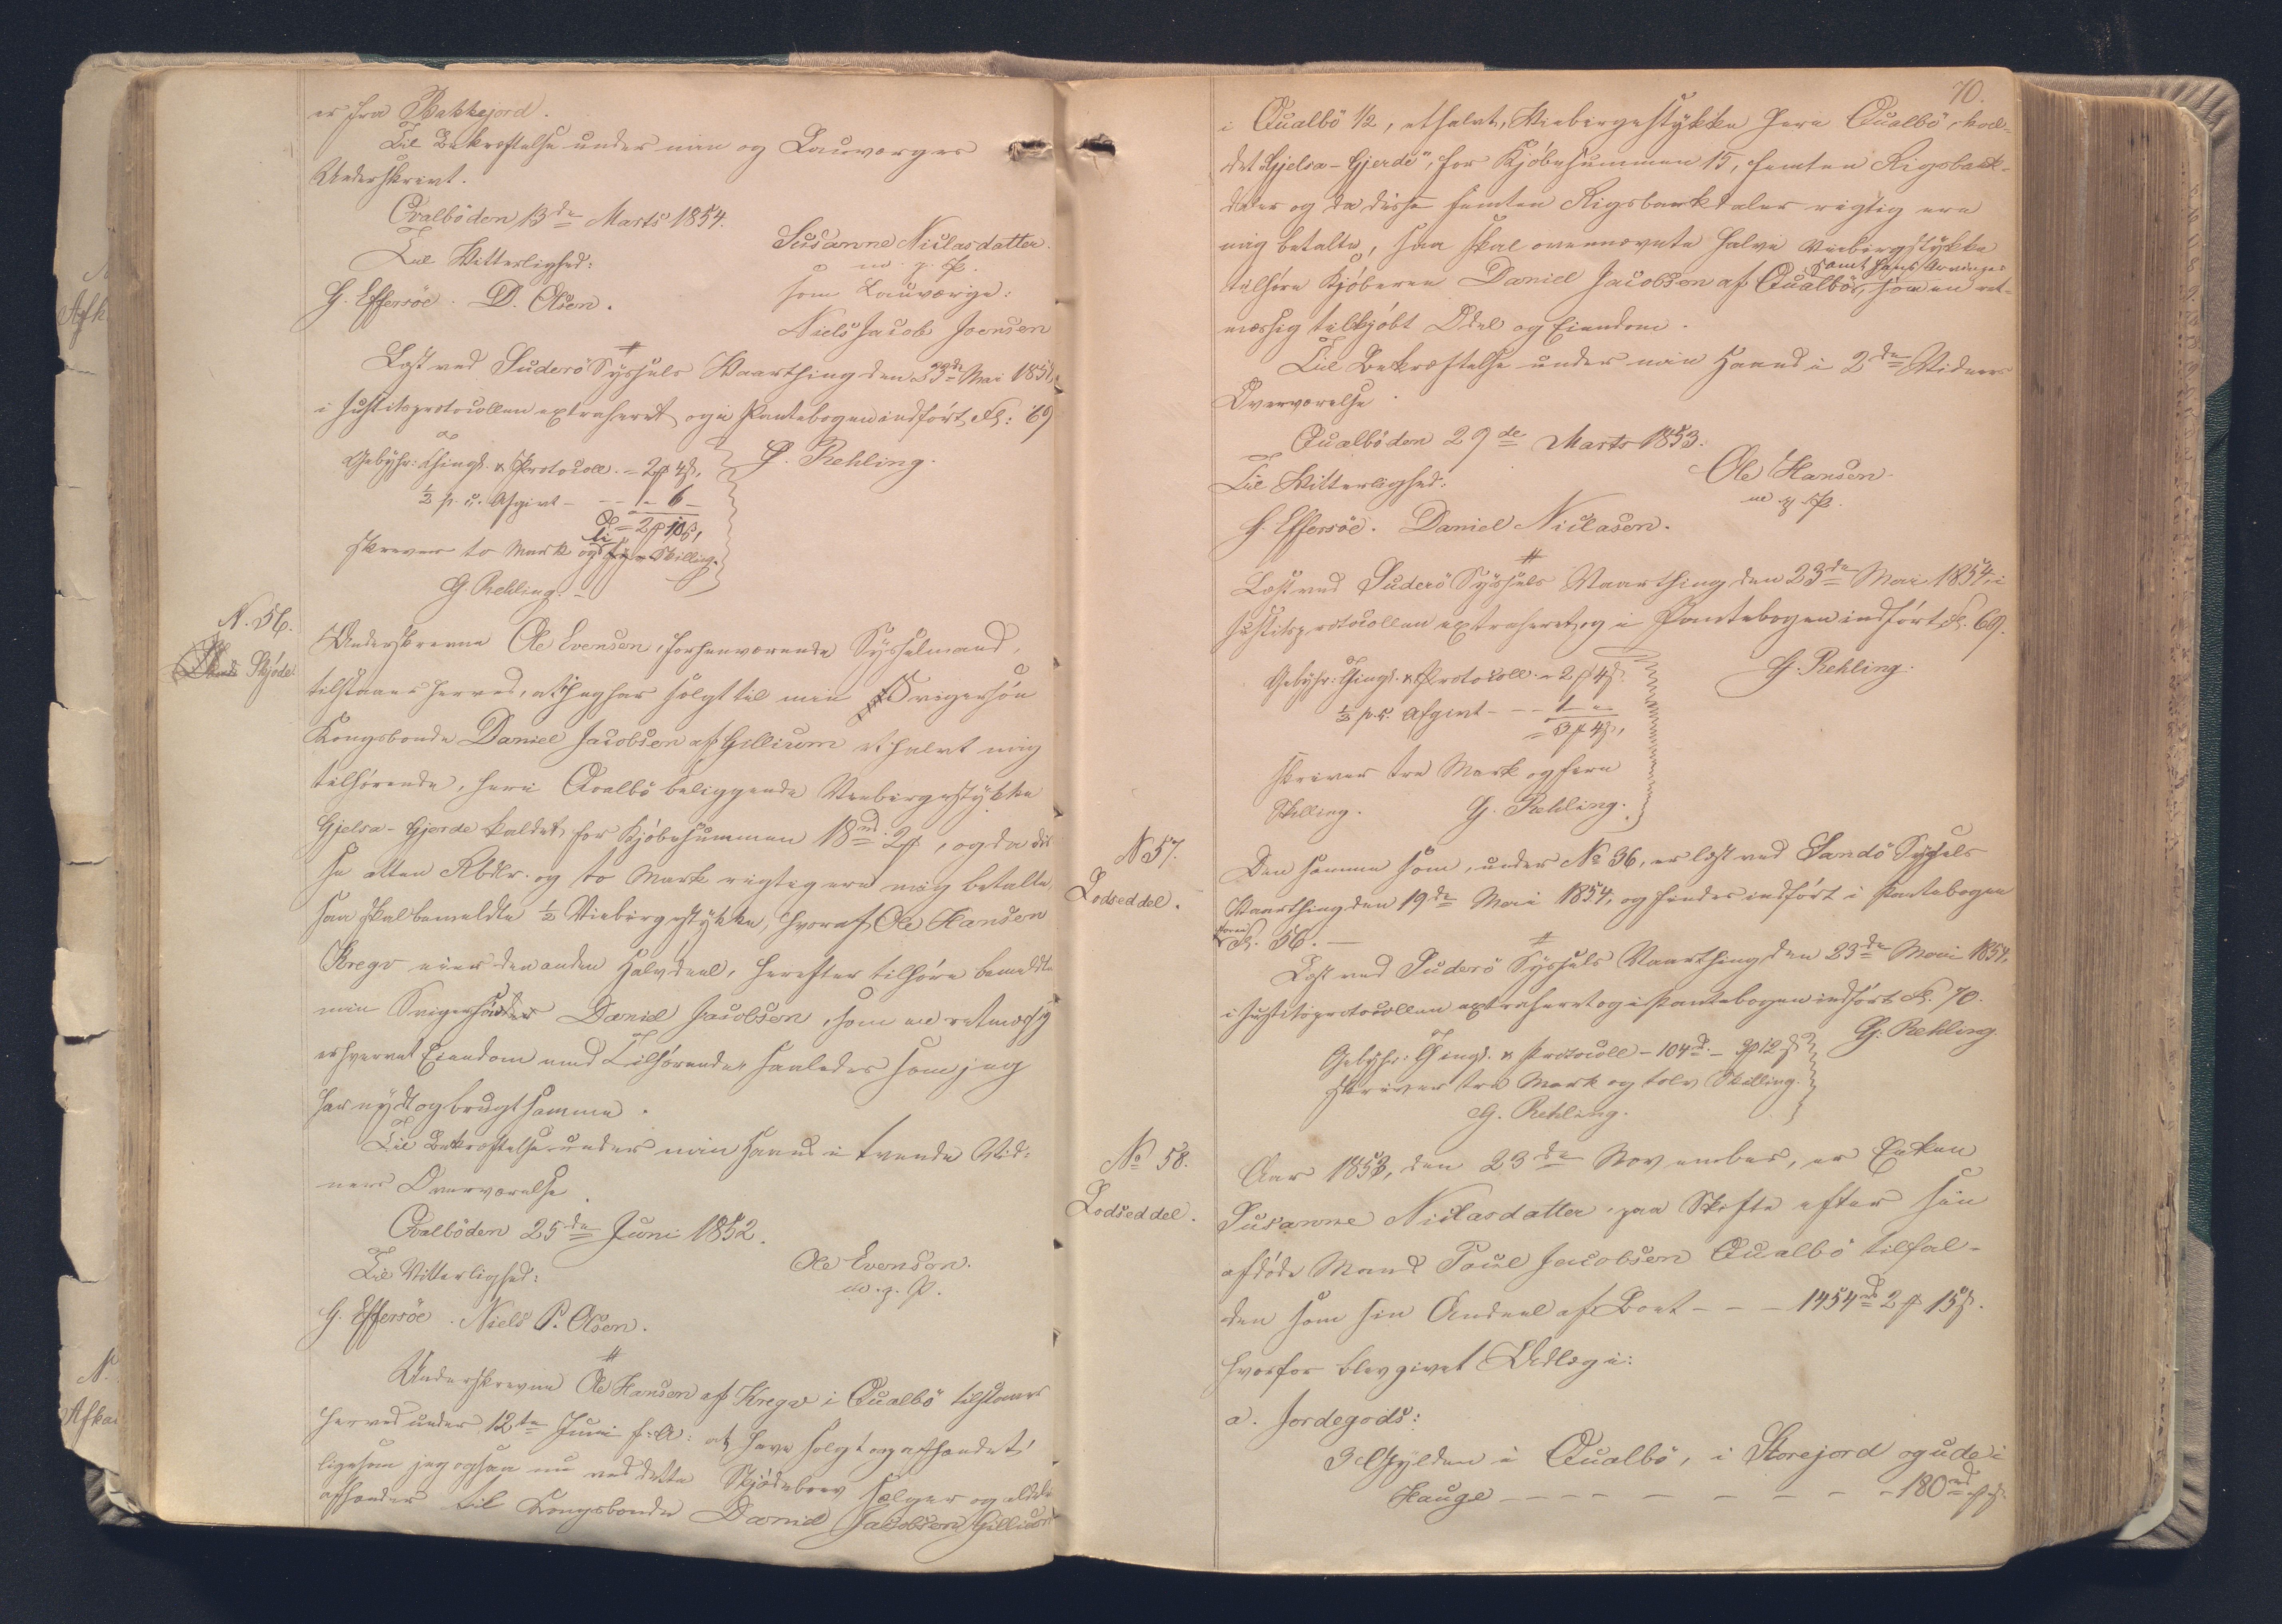 er fra Bakkejord.
Til Bekræftelse under min og Lauværges
Underskrivt.
Qvalbö den 13de Marts 1854.
Susanne Niclasdatter.
m. p. P.
Til Vitterlighed:
som Lauværge:
H. Effersöe. D. Olsen.
Niels Jacob Joensen
Læst ved Suderö Syssels Vaarthing den 23de Mai 1854,
i Justitsprotocollen extraheret og i Pantebogen indfört Fol: 69
G. Rehling.
Gebyhr: Thingl. & Protocoll. = 2 4
½ p. c. Afgivt - - - 1 - 6 -
= 2 10
skriver to Mark og ti Skilling.
G. Rehling.
N. 56.
Skjöde.
Underskrevne Ole Evensen, forhenværende Sysselmand,
tilstaaer herved, at jeg har solgt til min Svigersön
Kongsbonde Daniel Jacobsen af Gillium et halvt mig
tilhörende, her i Qvalbö beliggende Viebirgestykke
Gjelsa-Gjerde kaldet for Kjöbesummen 18 rd 2, og da dis
se atten Rbdlr. og to Mark rigtig ere mig betalte,
saa skal bemeldte ½ Viebirgestykke, hvoraf Ole Hansen
Kregv eier den anden Halvdeel, herefter tilhöre bemeldte
min Svigersön Daniel Jacobsen, som en retmæssig
erhvervet Eiendom med Tilhörende saaledes som jeg
har nydt og brugt samme.
Til Bekræftelse under min Haand i tvende Vid-
ners Overværelse.
Qvalbö den 25de Juni 1852.
Ole Evensen.
m. p. P.
Til Vitterlighed:
H. Effersöe. Niels P. Olsen.
Underskrevne Ole Hansen af Kregv i Qualbö tilstaaer
herved under 12te Juni f. A. at have solgt og afhændet
ligesom jeg ogsaa nu ved dette Skjödebrev sælger og aldeles
afhænder til Kongsbonde Daniel Jacobsen Gillium
70.
i Qualbö 1/2, et halvt, Viebirgestykke her i Qualbö, kal-
det "Gjelsa-Gjerde", for Kjöbesummen 15, femten Rigsbank-
daler og da disse femten Rigsbankdaler rigtig ere
mig betalte, saa skal ovennævnte halve Viebirgstykke
tilhöre Kjöberen Daniel Jacobsen af Qualbö, samt hans Arvinger som en ret-
mæssig tilkjöbt Odel og Eiendom.
Til Bekræftelse under min Haand i 2de Vidners
Overværelse.
Qualbö den 29de Marts 1853.
Ole Hansen
m. p. P.
Til Vitterlighed:
H. Effersöe. Daniel Niclasen.
Læst ved Suderö Syssels Vaarthing den 23de Mai 1854, i
Justitsprotocollen extraheret og i Pantebogen indfört Fol. 69.
G. Rehling.
Gebyhr: Thingl. & Protocoll. = 2 4
½ p. c. Afgivt - - - 1 -
= 3 4
skriver tre Mark og fire
Skilling. G. Rehling.
N 57.
Lodseddel.
Den samme som, under No 36, er læst ved Sandö Syssels
Vaarthing den 19de Mai 1854, og findes indfört i Pantebogen
foran Fol. 56. —
Læst ved Suderö Syssels Vaarthing den 23de Mai 1854,
i Justitsprotocollen extraheret og i Pantebogen indfört Fol. 70.
G. Rehling.
Gebyhr: Thingl. & Protocoll - 104 - 3 12
skriver tre Mark og tolv Skilling.
G. Rehling.
No 58.
Lodseddel.
Aar 1853, den 23de November, er Enken
Susanne Niclasdatter, paa Skifte efter sin
afdöde Mand Poul Jacobsen Qualbö tilfal-
den som sin Andeel af Boet - - - 1454 rd 2 15.
hvorfor blev givet Udlæg i:
a. Jordegods:
3 Gylden i Qualbö, i Storejord og ude i
Hauge - - - - - - - - 180 rd